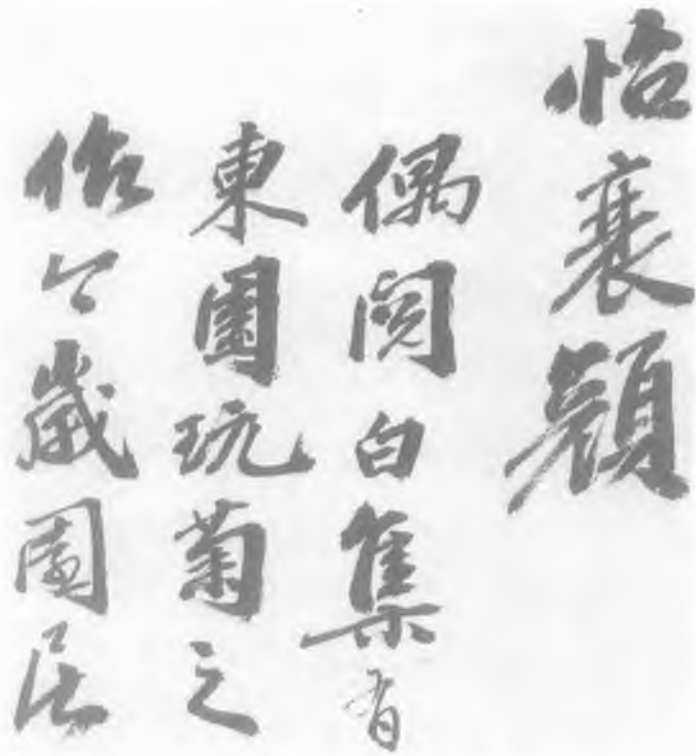 怡衰顔
偶閱白集有
東園玩菊之
作今歲園居